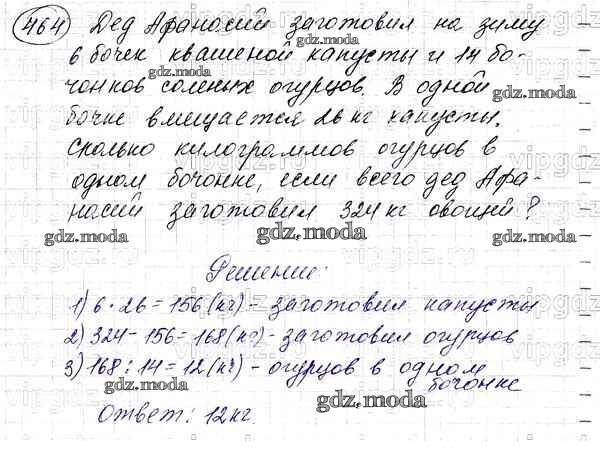 464 Дед Афанасий заготовил на зиму
6 бочек квашеной капусты и 14 бо-
чонков соленых огурцов. В одной
бочке вмещается 26 кг капусты.
Сколько килограммов огурцов в
одном бочонке, если всего дед Афа-
насий заготовил 324 кг овощей?
Решение:
1) 6 · 26 = 156 (кг) - заготовил капусты
2) 324 - 156 = 168 (кг) - заготовил огурцов
3) 168 : 14 = 12 (кг) - огурцов в одном
бочонке
Ответ: 12 кг.
gdz.moda
vipgdz